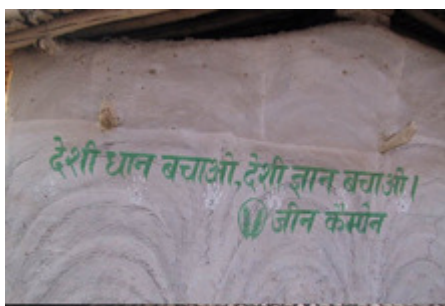 देशी धान बचाओ, देशी ज्ञान बचाओ।
जीन कैम्पेन